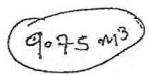 9.75 M³